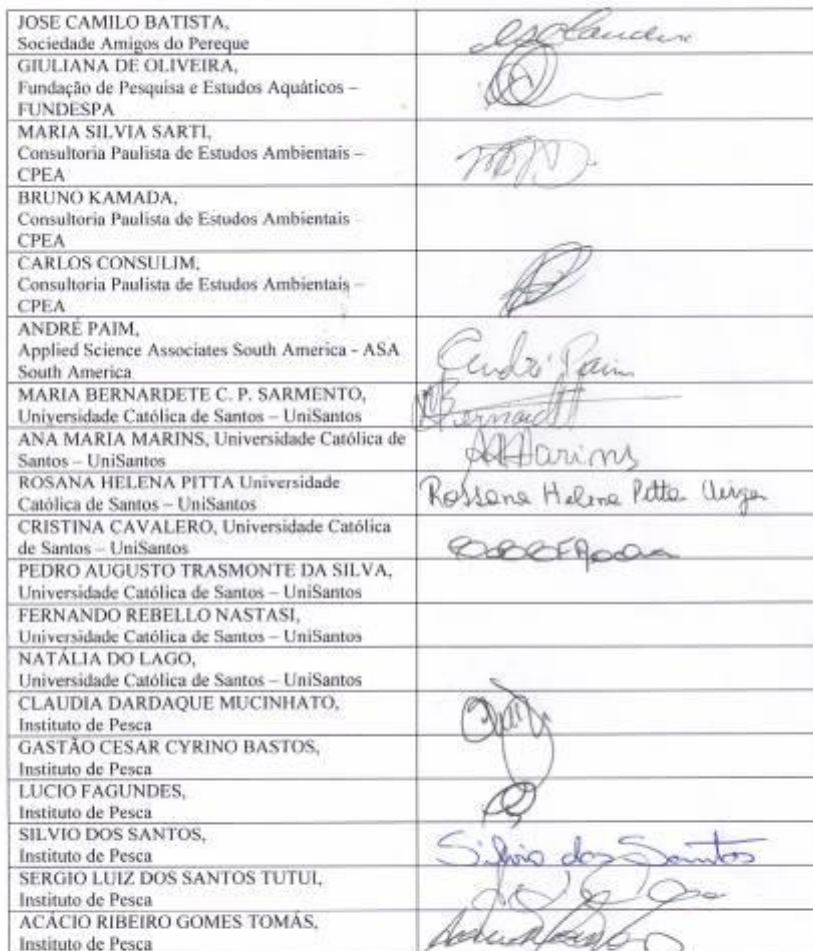 JOSE CAMILO BATISTA,
Sociedade Amigos do Pereque
GIULIANA DE OLIVEIRA,
Fundação de Pesquisa e Estudos Aquáticos –
FUNDESPA
MARIA SILVIA SARTI,
Consultoria Paulista de Estudos Ambientais –
CPEA
BRUNO KAMADA,
Consultoria Paulista de Estudos Ambientais
CPEA
CARLOS CONSULIM,
Consultoria Paulista de Estudos Ambientais –
CPEA
ANDRÉ PAIM,
Applied Science Associates South America - ASA
South America
André Paim
MARIA BERNARDETE C. P. SARMENTO,
Universidade Católica de Santos – UniSantos
ANA MARIA MARINS, Universidade Católica de
Santos – UniSantos
AMarins
ROSANA HELENA PITTA Universidade
Católica de Santos – UniSantos
Rossana Helena Pitta
CRISTINA CAVALERO, Universidade Católica
de Santos – UniSantos
PEDRO AUGUSTO TRASMONTE DA SILVA,
Universidade Católica de Santos – UniSantos
FERNANDO REBELLO NASTASI,
Universidade Católica de Santos – UniSantos
NATÁLIA DO LAGO,
Universidade Católica de Santos – UniSantos
CLAUDIA DARDAQUE MUCINHATO,
Instituto de Pesca
GASTÃO CESAR CYRINO BASTOS,
Instituto de Pesca
LUCIO FAGUNDES,
Instituto de Pesca
SILVIO DOS SANTOS,
Instituto de Pesca
Silvio dos Santos
SERGIO LUIZ DOS SANTOS TUTUI,
Instituto de Pesca
ACÁCIO RIBEIRO GOMES TOMÁS,
Instituto de Pesca